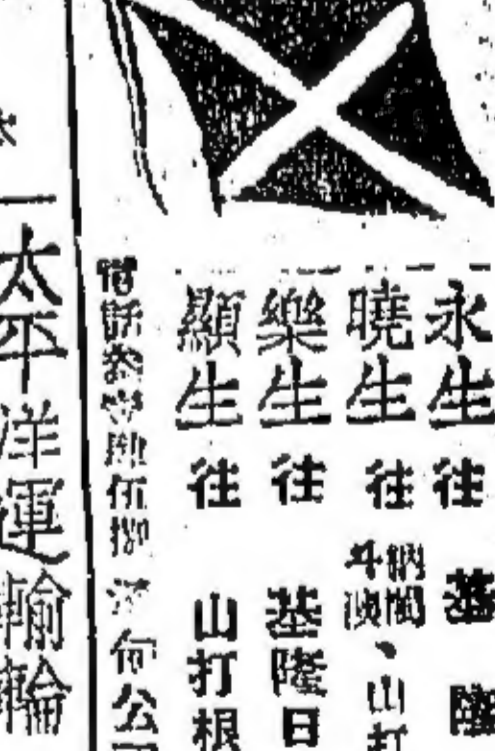 永生往 基隆
曉生往 納閩斗、山打
樂生往 基隆日
顯生往 山打根
電話 伍 公
太平洋運輸輪